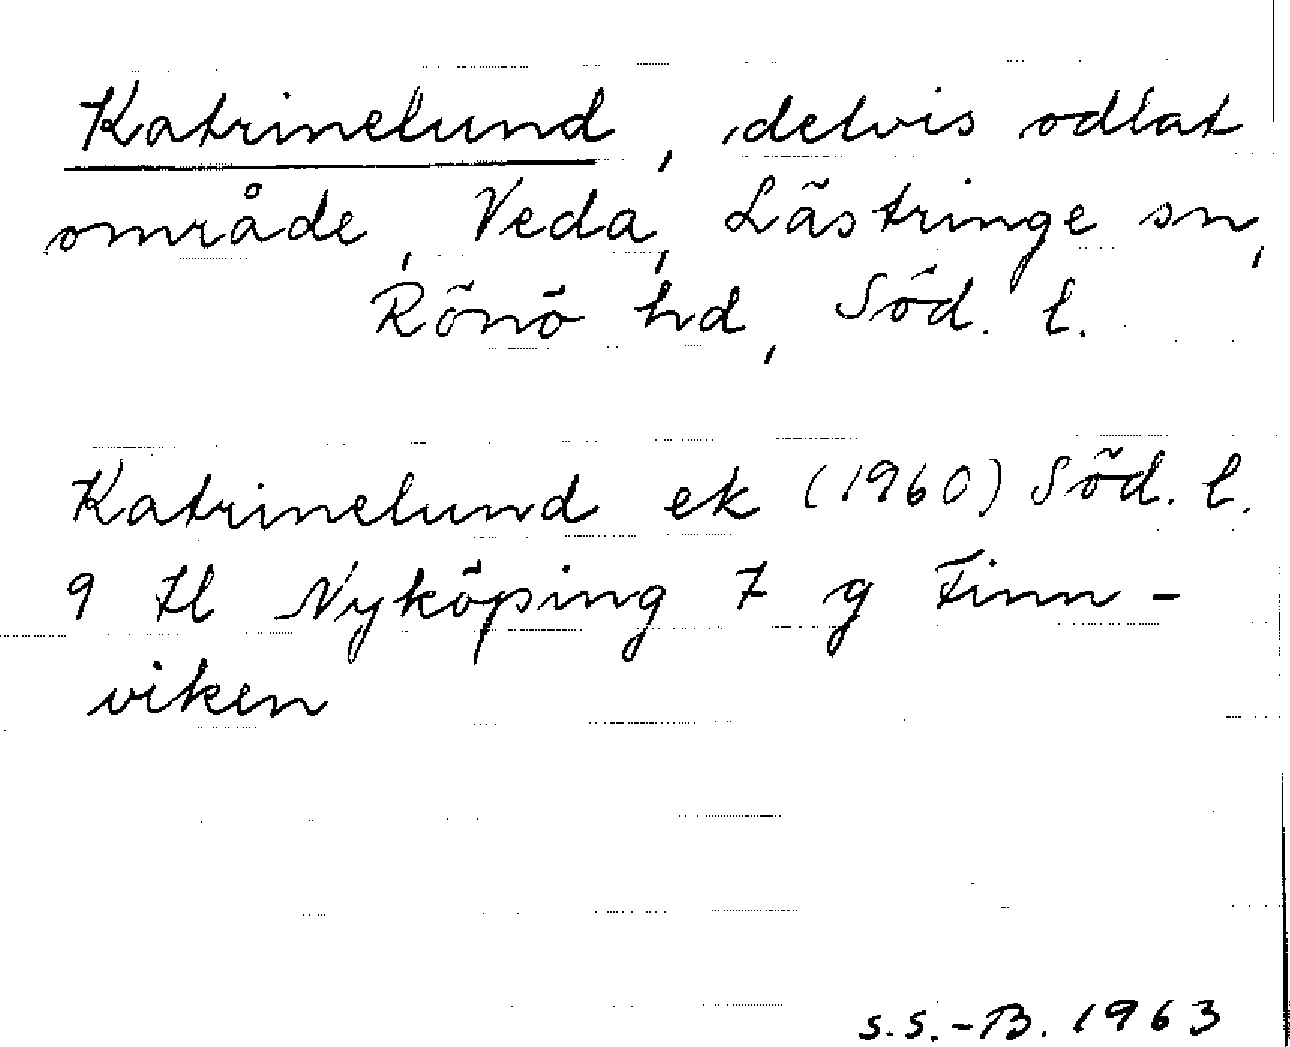 Katrinelund, delvis odlat
område, Veda, Lästringe sn,
Rönö hd, Söd. l.
Katrinelund ek (1960) Söd. l.
9 Hl Nyköping 7 g Finn-
viken
S.S.-B. 1963